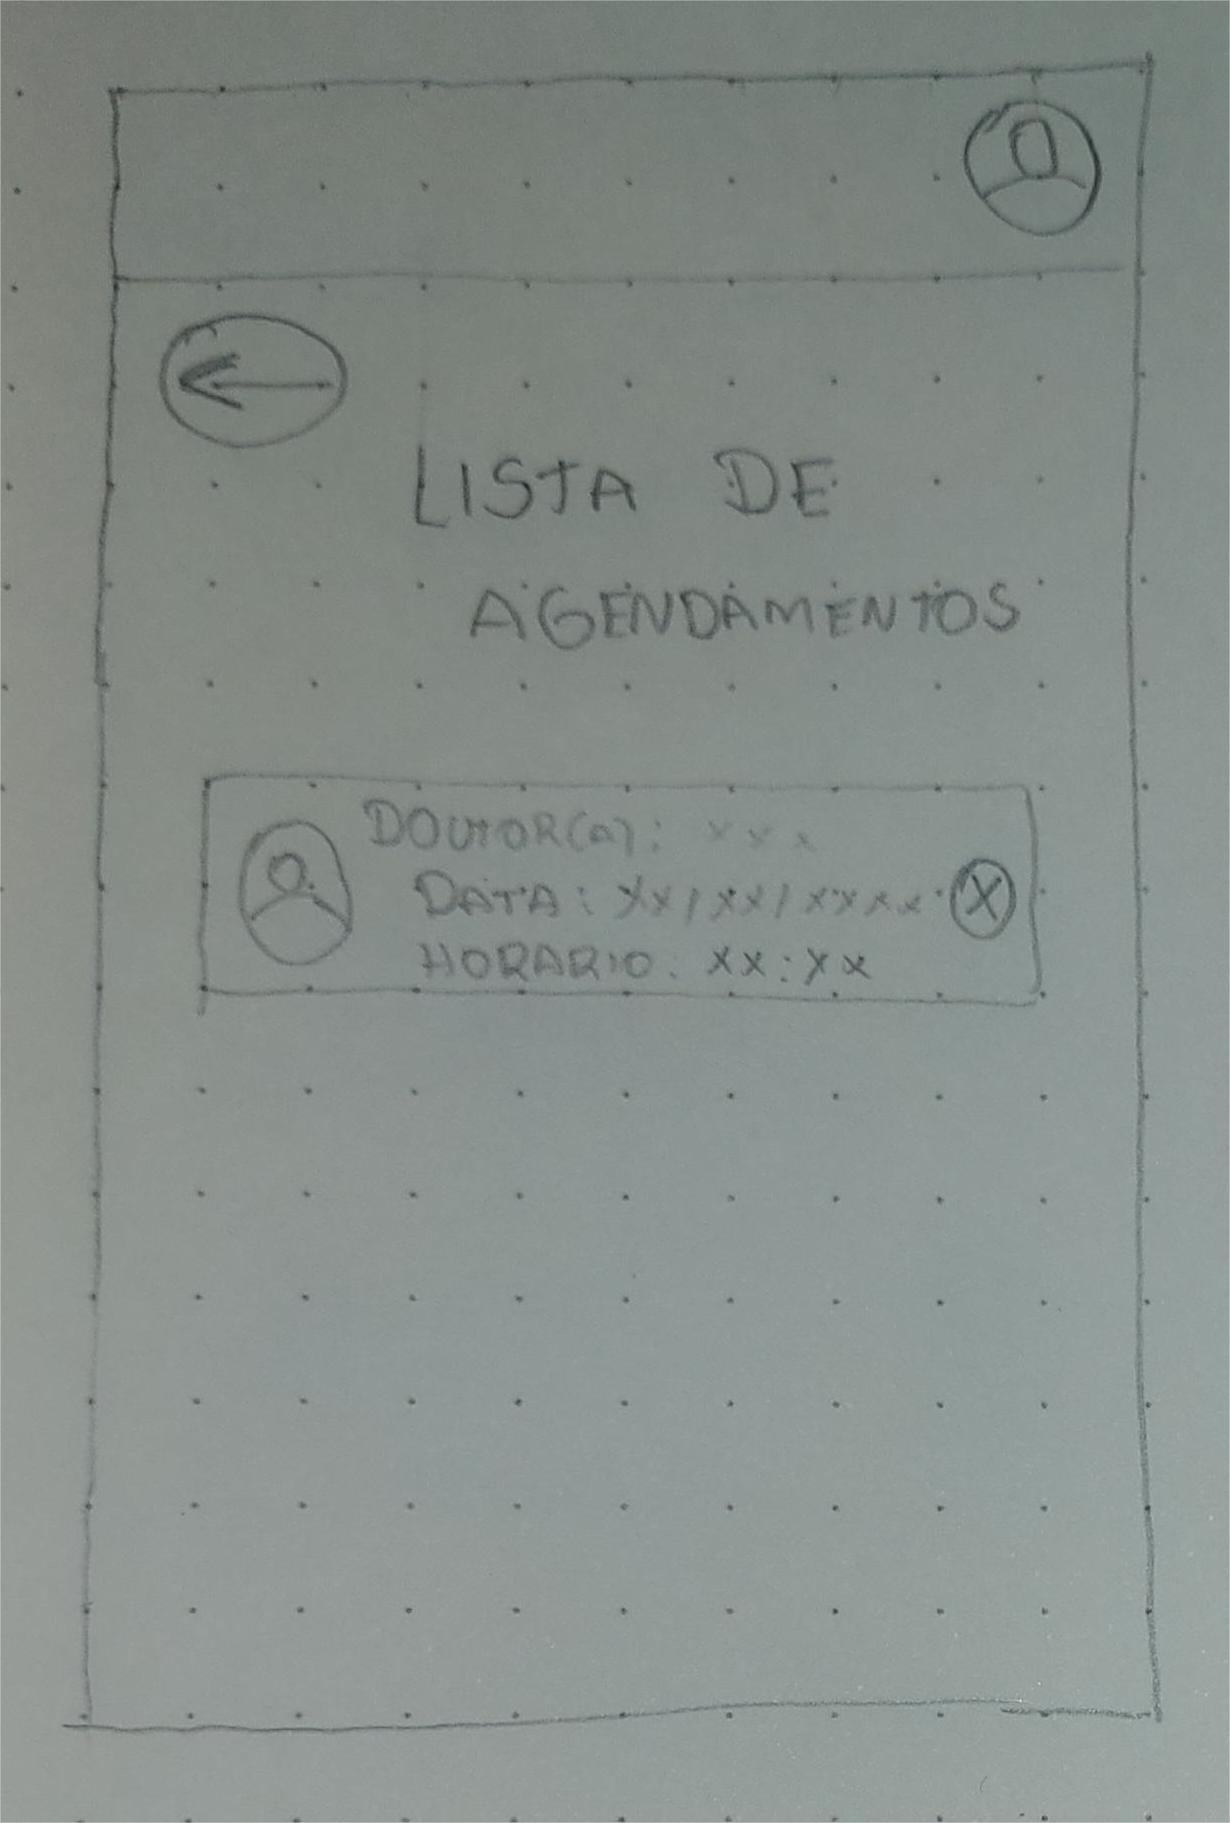 LISTA DE
AGENDAMENTOS
DOUTOR(A): xxx
DATA: xx/xx/xxxx X
HORARIO: xx:xx